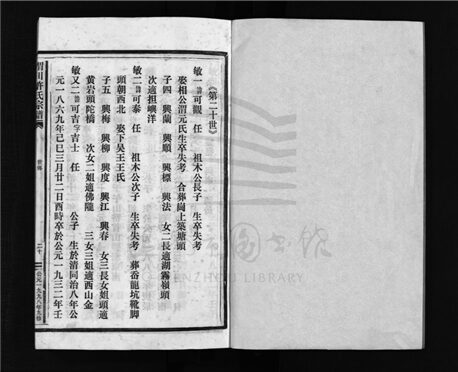 《第二十世》
敏一 諱可觀 任 祖木公長子 生卒失考
娶相公渭元氏生卒失考 合葬崗上築塘頭
子四 興蘭 興順 興標 興法 女二長適湖霧嶺頭
次適担嶼洋
敏二 諱可泰 任 祖木公次子 生卒失考 葬岙龍坑靴脚
頭朝西北 娶下吳王王氏
子五 興梅 興柳 興度 興江 興春 女三長女姐頭適
黄岩頭陀橋 次女二姐適佛隴 三女三姐適西山金
敏又二 諱可吉字吉士 任 公子 生於清同治八年公
元一八六九年己巳三月廿二日酉時卒於公元一九三二年壬
川許氏宗譜
世傳
二十
公元一九九八年冬修
圖書館
WENZHOU LIBRARY